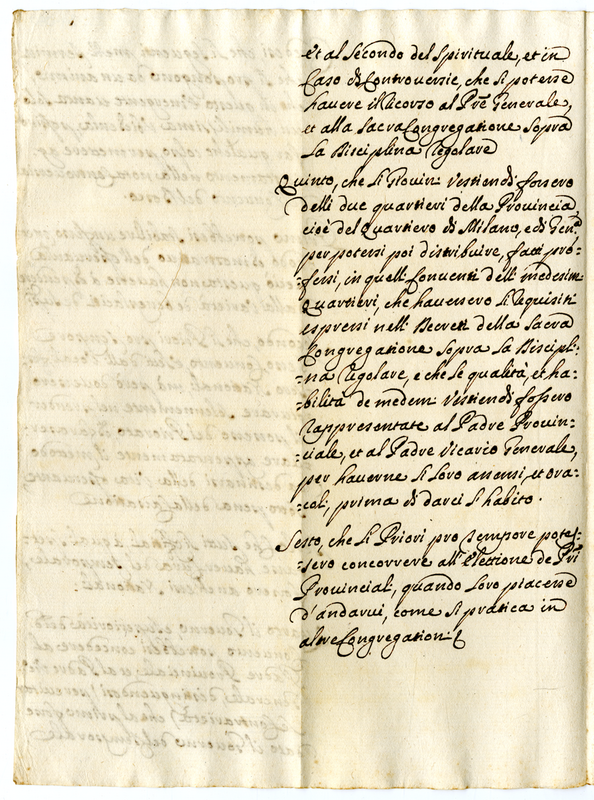 et al Secondo del Spirituale, et in
Caso di Controversie, che si potesse
havere il Ricorso al Pre Generale,
et alla Sacra Congregatione Sopra
La Disciplina Regolare
Quinto, che Li Giovini Vestiendi fossero
delli due quartieri della Provincia,
cioè del Quartiero di Milano, e di Gen.
per potersi poi distribuire, fatti pro=
=fessi, in quelli Conventi delli medesimi
Quartieri, che havessero Li Requisiti
espressi nelli Decreti della Sacra
Congregatione Sopra La Discipli=
=na Regolare, e che Le qualità, et ha=
=bilità de medemi Vestiendi fossero
rappresentate al Padre Provin=
=ciale, et al Padre Vicario Generale,
per haverne Li Loro assensi, et ora=
=coli, prima di darci L'habito.
Sesto, che Li Priori pro tempore potes=
=sero concorrere all'Elettione de Pri
Provinciali, quando Loro piacesse
d'andarvi, come si pratica in
altre Congregationi